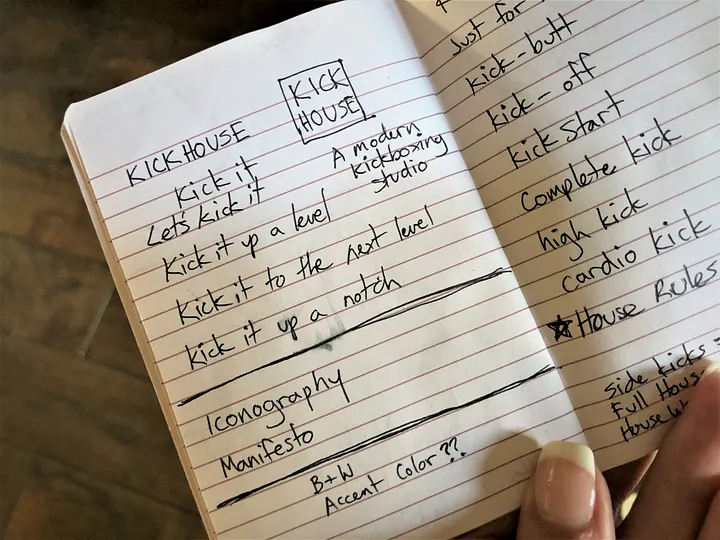 KICKHOUSE
KICK
HOUSE
A modern
kickboxing
studio
Kick it
Let's Kick it
Kick it up a level
Kick it to the next level
kick it up a notch
Iconography
Manifesto
B+W
Accent Color??
Just for
kick-butt
kick-off
kick start
Complete kick
high kick
cardio kick
House Rules
side kicks
Full Hous
House